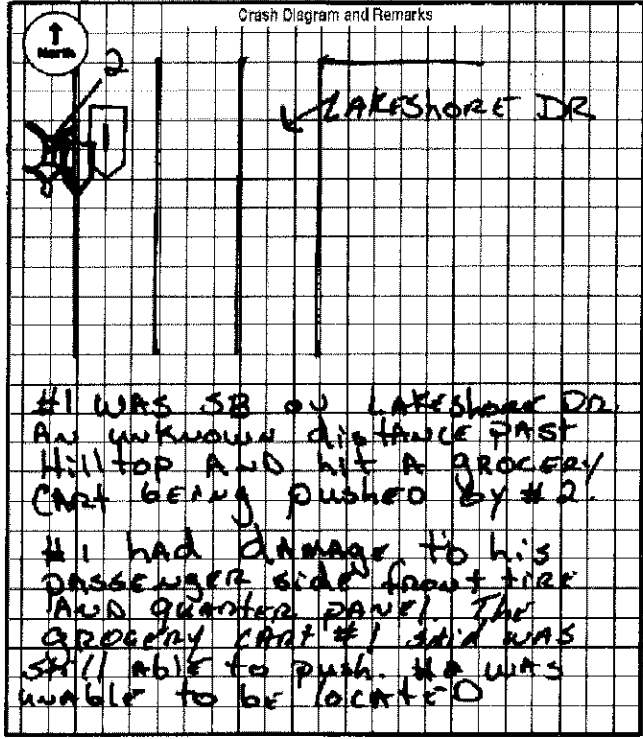 Crash Diagram and Remarks
North
2
1
LAKEShORE DR
#1 WAS SB ON LAKEShore DR.
AN UNKNOWN distANCE PAST
HillTOP AND hit A GROCERY
CART bEING pushED by #2.
#1 hAd dAMAGE to his
PASSENGER side front tire
AND QUARTER PANEL. The
GROCERY CART #1 said WAS
still AblE to push. #2 WAS
UNABLE to bE locATED